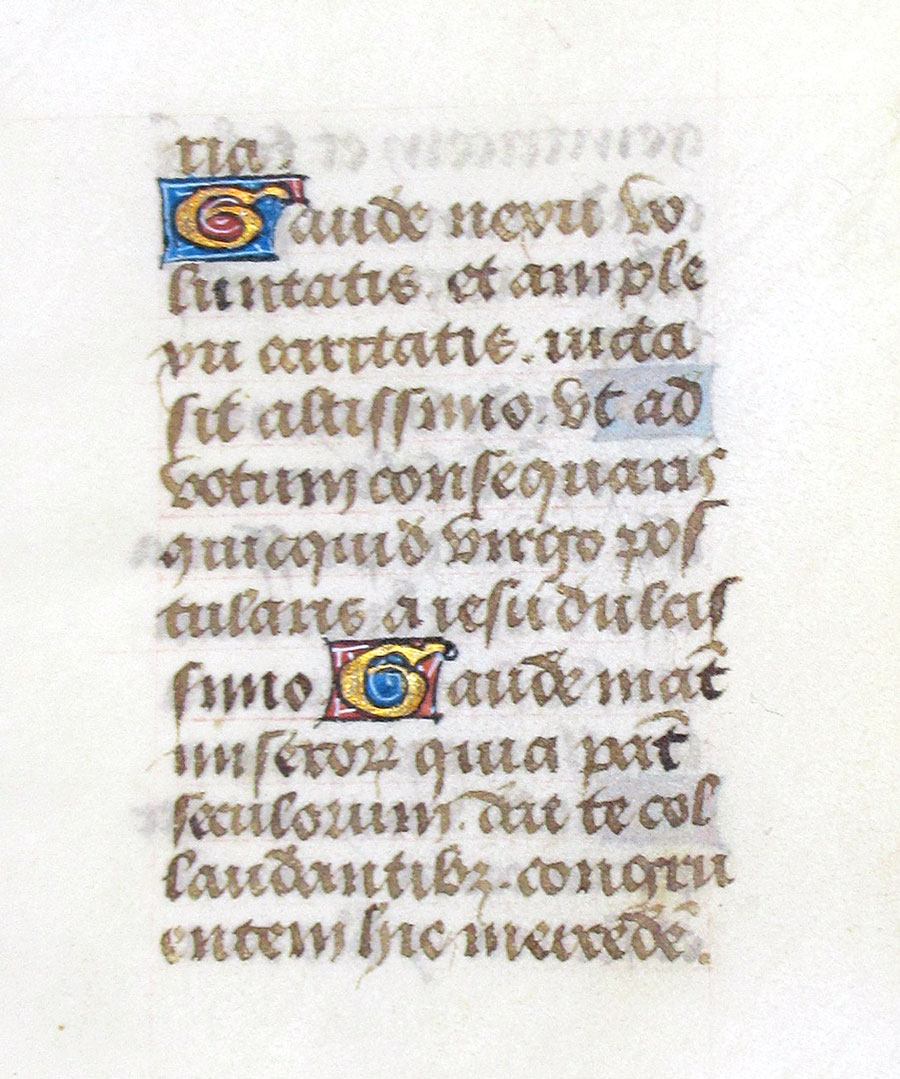 ria.
Gaude nexu vo
luntatis. et ample
xu caritatis. iucta
sit altissimo. vt ad
votum consequaris
quicquid virgo pos
tularis a iesu dulcis
simo Gaude mat̄
miseroꝝ quia pat̄
seculorum. dat te col
laudantibꝫ. congru
entem hic mercedē.